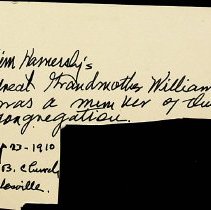 Jim Kamersky's
Great Grandmother William
was a member of the
congregation.
-23-1910
B. Church
ville.